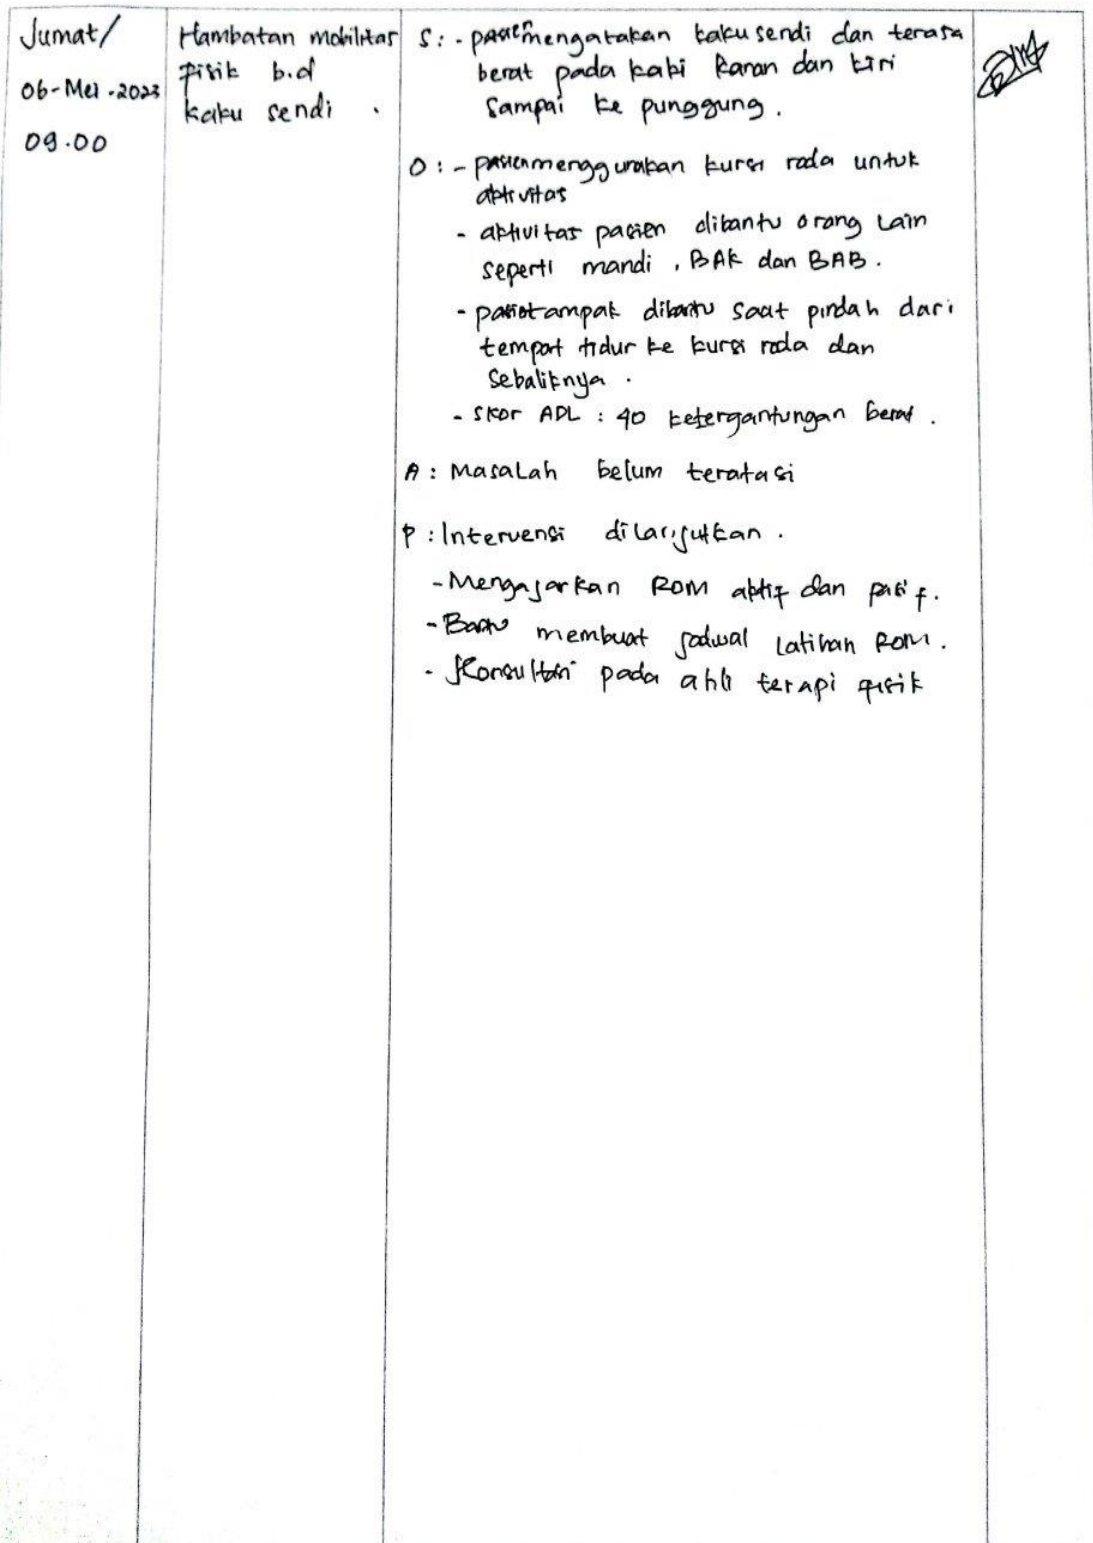 Jumat/
06-Mei-2023
09.00
Hambatan mobilitas
fisik b.d
kaku sendi .
S: - pasien mengatakan kaku sendi dan terasa
berat pada kaki kanan dan kiri
sampai ke punggung.
O: - pasien menggunakan kursi roda untuk
aktivitas
- aktivitas pasien dibantu orang lain
seperti mandi, BAK dan BAB.
- pasien tampak dibantu saat pindah dari
tempat tidur ke kursi roda dan
sebaliknya.
- Skor ADL : 40 ketergantungan berat.
A: Masalah belum teratasi
P: Intervensi dilanjutkan.
- Mengajarkan ROM aktif dan pasif.
- Bantu membuat jadwal latihan ROM.
- Konsultasi pada ahli terapi fisik